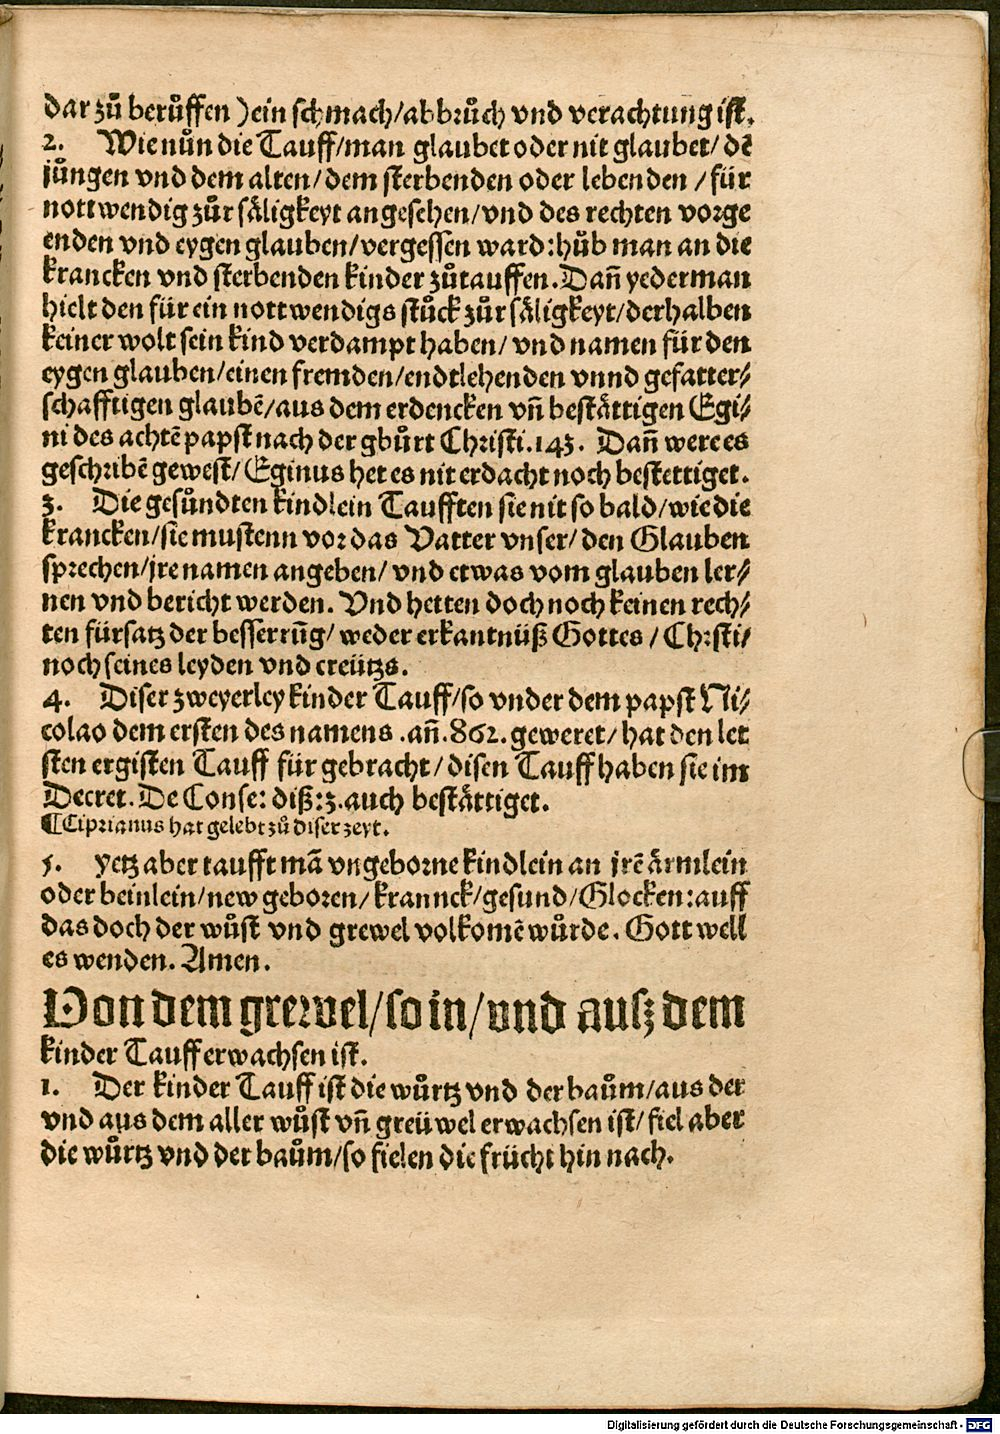 dar zů berůffen )ein schmach/abbrůch vnd verachtung ist.
2. Wie nůn die Tauff/man glaubet oder nit glaubet/ dē
jůngen vnd dem alten/dem sterbenden oder lebenden /für
nottwendig zůr säligkeyt angesehen/vnd des rechten vorge
enden vnd eygen glauben/vergessen ward:hůb man an die
krancken vnd sterbenden kinder zůtauffen.Dañ yederman
hielt den für ein nottwendigs stůck zůr säligkeyt/derhalben
keiner wolt sein kind verdampt haben/ vnd namen für den
eygen glauben/einen fremden/endtlehenden vnnd gefatter/
schafftigen glaubē/aus dem erdencken vñ bestättigen Egi/
ni des achtē papst nach der gbůrt Christi.143. Dañ were es
geschribē gewest/ Eginus het es nit erdacht noch bestettiget.
3. Die gesůndten kindlein Taufften sie nit so bald/wie die
krancken/sie mustenn vor das Vatter vnser/ den Glauben
sprechen/jre namen angeben/ vnd etwas vom glauben ler/
nen vnd bericht werden. Vnd hetten doch noch keinen rech/
ten fürsatz der besserrũg/ weder erkantnüß Gottes / Christi/
noch seines leyden vnd creützs.
4. Diser zweyerley kinder Tauff/so vnder dem papst Ni/
colao dem ersten des namens .añ.862. geweret/ hat den let
sten ergisten Tauff für gebracht/ disen Tauff haben sie im
Decret. De Conse: diß:3.auch bestättiget.
¶Ciprianus hat gelebt zů diser zeyt.
5. Yetz aber taufft mā vngeborne kindlein an jrē ärmlein
oder beinlein/new geboren/ krannck/gesund/Glocken:auff
das doch der wůst vnd grewel volkomē würde. Gott well
es wenden. Amen.
Von dem grewel/so in/vnd ausz dem
kinder Tauff erwachsen ist.
1. Der kinder Tauff ist die wůrtz vnd der baům/aus der
vnd aus dem aller wůst vñ greüwel erwachsen ist/ fiel aber
die wůrtz vnd der baům/so fielen die frücht hin nach.
Digitalisierung gefördert durch die Deutsche Forschungsgemeinschaft - DFG